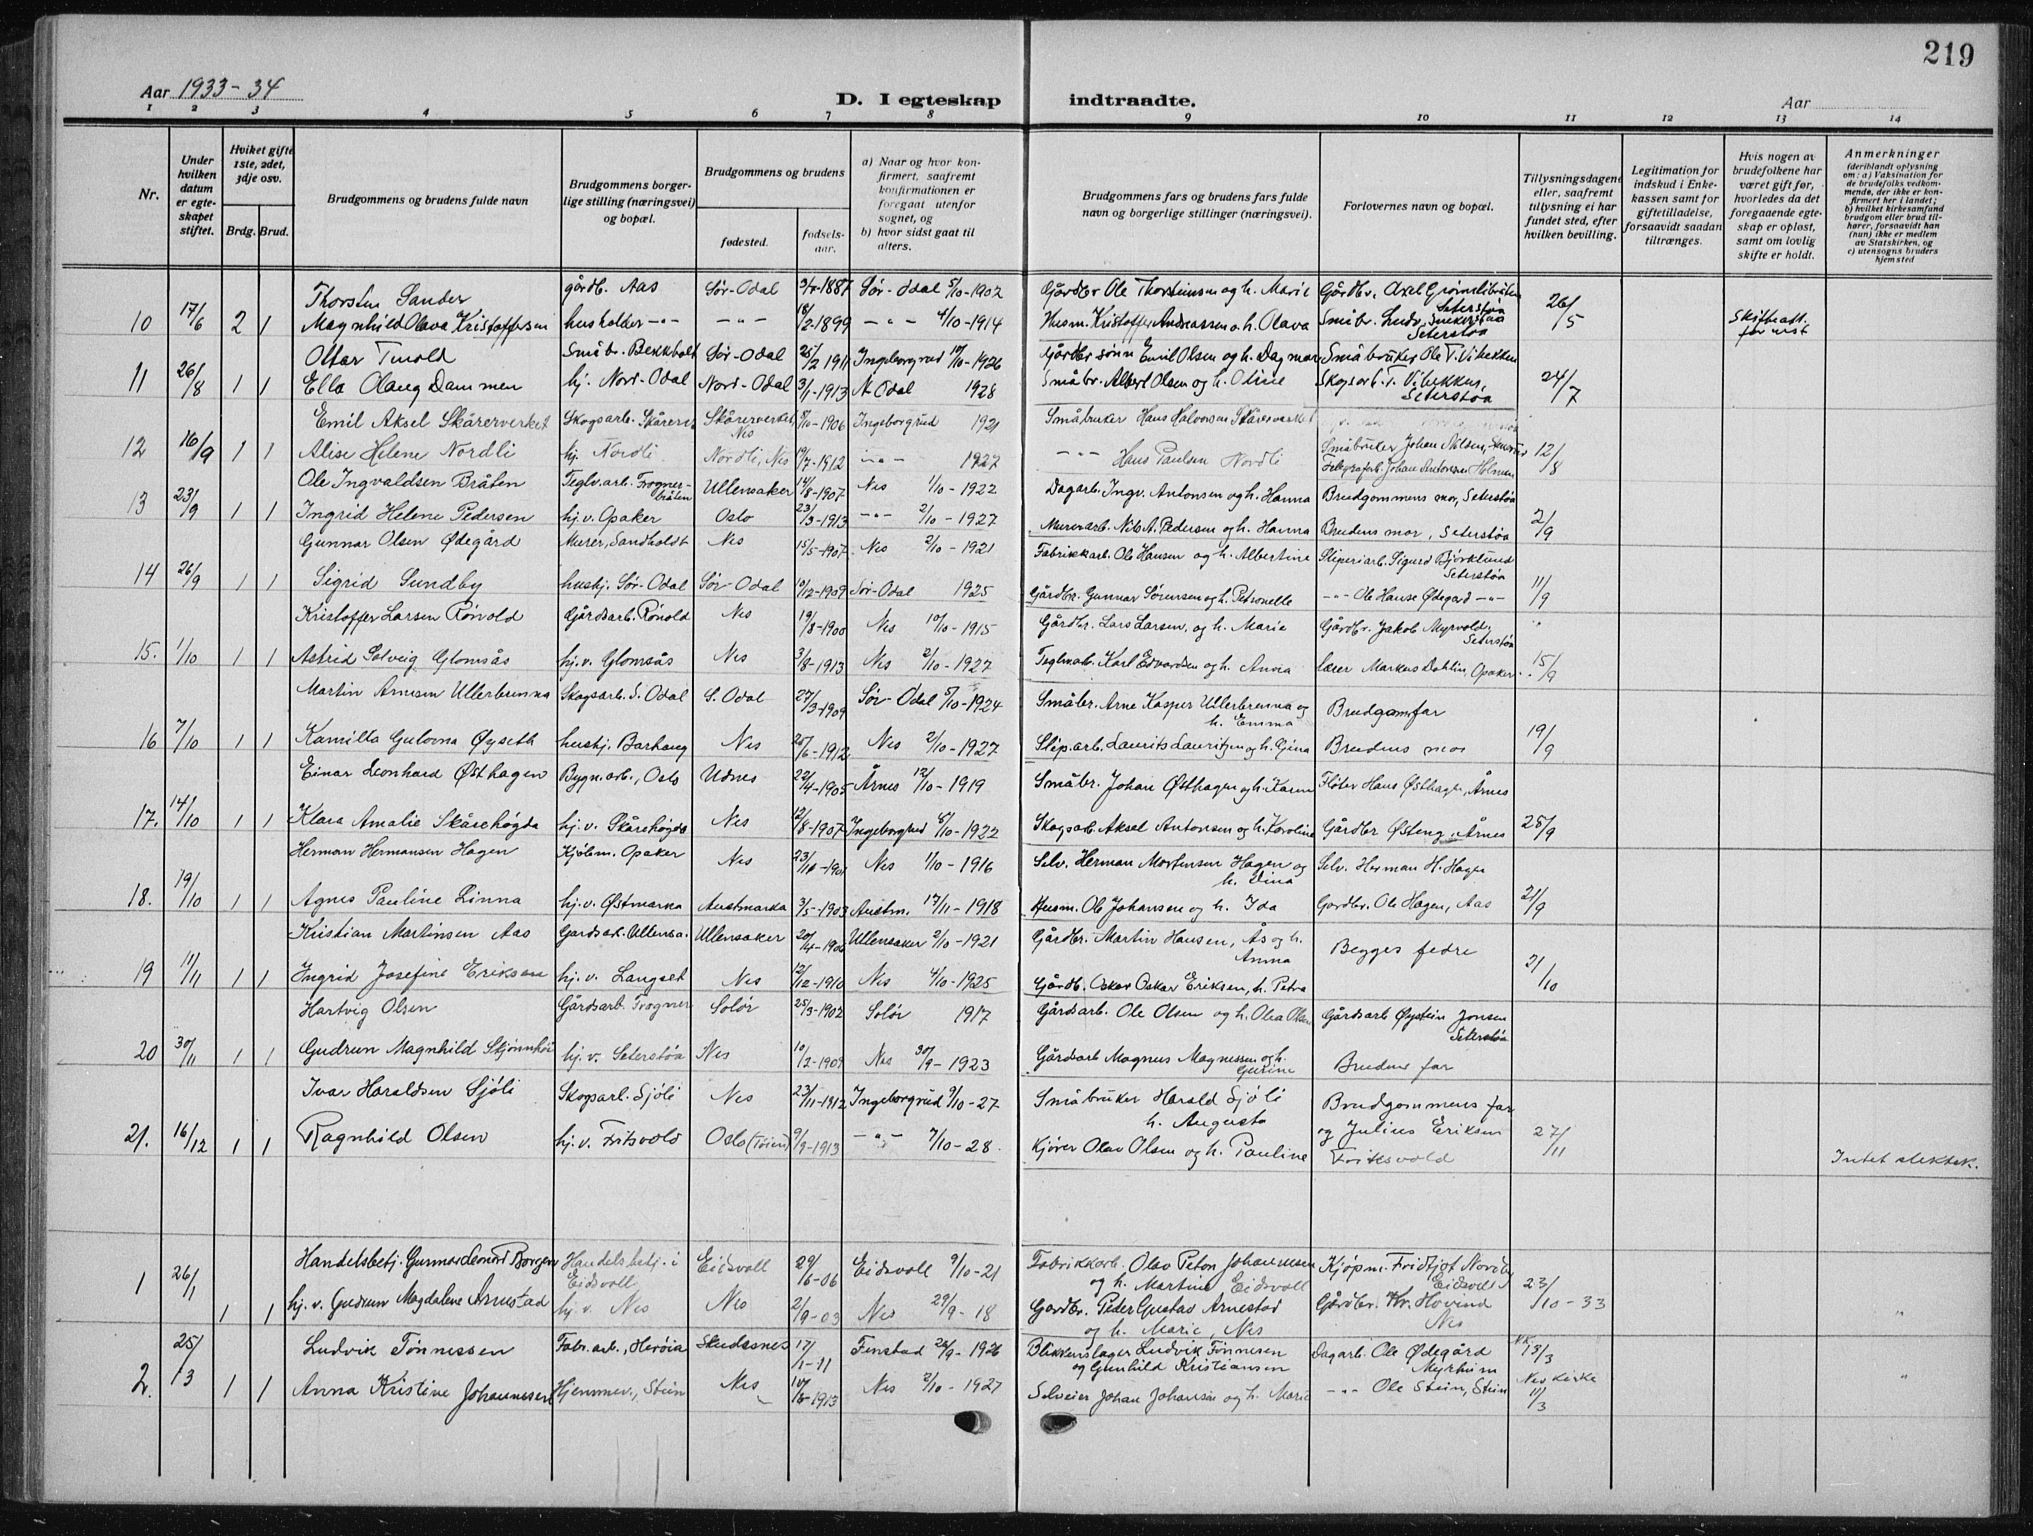 219
Aar 1933-34
D. I egteskap indtraadte.
Aar
1 2 3 4 5 6 7 8 9 10 11 12 13 14
Nr.
Under hvilken datum er egte-skapet stiftet.
Hvilket gifte 1ste, 2det, 3dje osv.
Brdg. Brud.
Brudgommens og brudens fulde navn
Brudgommens borger-lige stilling (næringsvei) og bopæl.
Brudgommens og brudens
fødested.
fødsels-aar.
a) Naar og hvor kon-firmert, saafremt konfirmationen er foregaat utenfor sognet, og
b) hvor sidst gaat til alters.
Brudgommens fars og brudens fars fulde navn og borgerlige stillinger (næringsvei).
Forlovernes navn og bopæl.
Tillysningsdagene eller, saafremt tillysning ei har fundet sted, efter hvilken bevilling.
Legitimation for indskud i Enke-kassen samt for giftetilladelse, forsaavidt saadan tiltrænges.
Hvis nogen av brudefolkene har været gift før, hvorledes da det foregaaende egte-skap er opløst, samt om lovlig skifte er holdt.
Anmerkninger
(deriblandt oplysning om: a) Vaksination for de brudefolks vedkom-mende, der ikke er kon-firmert her i landet; b) hvilket kirkesamfund brudgom eller brud til-hører, forsaavidt han (hun) ikke er medlem av Statskirken, og c) utensogns bruders hjemsted
Thorsten Sander gårdb. Aas Sør-Odal 1887 Sør-Odal 5/10-1902 Gårdbr Ole Thorstensen og h. Marie Gårdbr. Axel Seterstøa
10 17/6 2 1 Magnhild Olava Kristoffersen husholder -"- -"- 18/2-1899 -"- 4/10-1914 Husm. Kristoffer Andreassen o.h. Olava Småbr. Ludv. Seterstøa 26/5 Skifteatt.
Ottar Småbr. Sør-Odal 25/2 1911 Ingeborgrud 10/10-1926 Gårdbr sønn Emil Olsen og h. Dagmar Småbruker Ole T. Vibekken
11 26/8 1 1 Ella Olaug Dammen hj. Nord-Odal Nord-Odal 3/1-1913 N Odal 1928 Småbr. Albert Olsen og h. Oline Skogsarb. Seterstøa 24/7
Emil Aksel Skårerverket Skogsarb. Skårerv. Skårerverket, Nes 1906 Ingeborgrud 1921 Småbruker Hans Halvorsen Skårerverket
12 16/9 1 1 Alise Helene Nordli hj. Nordli Nordli, Nes 1912 -"- 1927 -"- Hans Paulsen Nordli Småbruker Johan Nilsen, 12/8
Telegrafarb. Johan Antonsen Holmen
Ole Ingvaldsen Bråten Teglv.arb. Frogner-bråten Ullensaker 14/8-1907 Nes 1/10-1922 Dagarb. Ingv. Antonsen og h. Hanna Brudgommens mor, Seterstøa
13 23/9 1 1 Ingrid Helene Pedersen hj.v. Opaker Oslo 23/3-1913 -"- 2/10-1927 Murerarb. Nils A. Pedersen og h. Hanna Brudens mor, Seterstøa 2/9
Gunnar Olsen Ødegård Murer, Sandholdt Nes 15/5-1907 Nes 2/10-1921 Fabrikkarb. Ole Hansen og h. Albertine Sliperiarb. Sigurd Bjørklund Seterstøa
14 26/9 1 1 Sigrid Sundby hushj. Sør-Odal Sør-Odal 10/12-1909 Sør-Odal 1925 Gårdbr. Gunnar Sørensen og h. Petronelle -"- Ole Hanse Ødegård -"- 11/9
Kristoffer Larsen Rønold Gårdsarb. Rønold Nes 19/8-1900 Nes 10/10-1915 Gårdbr. Lars Larsen, og h. Marie Gårdbr. Jakob Myrvold, Seterstøa "
15. 1/10 1 1 Astrid Solveig Glomsås hj.v. Glomsås Nes 3/8-1913 Nes 2/10-1927 Teglmarb. Karl Edvardsen og h. Anna lærer Markus Dahlin, Opaker 15/9
Martin Arnesen Ullerbrenna Skogsarb. S. Odal S. Odal 27/3-1909 Sør-Odal 5/10-1924 Småbr. Arne Kasper Ullerbrenna og h. Emma Brudgomfar
16 7/10 1 1 Kamilla Gulovna Øyseth hushj. Barhaug Nes 25/6-1912 Nes 2/10-1927 Slip.arb. Laurits Lauritzen og h. Gina Brudens mor 19/9
Einar Leonhard Østhagen Bygn.arb., Oslo Udnes 22/4-1905 Årnes 12/10-1919 Småbr. Johan Østhagen og h. Karen Fløter Hans Østhagen, Årnes
17. 14/10 1 1 Klara Amalie Skårehøgda hj.v. Skårehøgda Nes 12/8-1907 Ingeborgrud 8/10-1922 Skogsarb. Aksel Antonsen og h. Karoline Gårdbr Østeng, Årnes 25/9
Herman Hermansen Hagen Kjølem. Opaker Nes Nes 1/10-1916 Selv. Herman Mortensen Hagen og h. Dina Selv. Herman H. Hagen
18. 19/10 1 1 Agnes Pauline Linna hj.v. Østmarka Austmarka 3/5-1903 Austm. 17/11-1918 Husm. Ole Johansen og h. Ida Gardbr. Ole Hagen, Aas 21/9
Kristian Martinsen Aas Gardsarb. Ullensa. Ullensaker Ullensaker 2/10-1921 Gårdbr. Martin Hansen, Ås og h. Anna Begges fedre
19 11/11 1 1 Ingrid Josefine Eriksen hj.v. Langset Nes 12/12-1910 Nes 4/10-1925 Gårdb. Oskar Oskar Eriksen, h. Petra 21/10
Hartvig Olsen Gårdsarb. Frogner Solør 25/3-1902 Solør 1917 Gårdsarb. Ole Olsen og h. Olea Olsen Gårdsarb Øystein Jonsen Seterstøa
20 30/11 1 1 Gudrun Magnhild Skjønnhøi hj.v. Seterstøa Nes 10/2-1909 Nes 30/9-1923 Gårdsarb Magnus Magnessen og h. Gurine Brudens far
Ivar Haraldsen Sjøli Skogsarb. Sjøli Nes 23/11-1912 Ingeborgrud 9/10-27 Småbruker Harald Sjøli h. Augusta Brudgommens far
21. 16/12 1 1 Ragnhild Olsen hj.v. Fritsvold Oslo (Tøien) 9/9-1913 -"- 7/10-28. Kjører Olav Olsen og h. Pauline og Julius Eriksen Friksvold 27/11 Intet slektsk.
Handelsbetj. Gunnar Leonard Borgen Handelsbetj. i Eidsvoll Eidsvoll 29/6-06 Eidsvoll 9/10-21 Fabrikkarb. Olav Peton Johannesen og h. Martine Eidsvoll Kjøpm. Fridtjof Eidsvoll
1 26/1 1 1 hj.v. Gudrun Magdalene Arnestad hj.v. Nes Nes 2/9-03 Nes 29/9-18 Gardbr. Peder Gustav Arnestad og h. Marie, Nes Gårdbr. Kr. Hovind Nes 23/10-33 "
Ludvik Tønnessen Fabr.arb., Herøia Skudesnes 17/1-11 Finstad 26/9-1926 Blikkenslager Ludvik Tønnesen og Gunhild Kristiansen Dagarb. Ole Ødegård Myrheim 13/3
2. 25/3 1 1 Anna Kristine Johannesen Hjemmev., Stein Nes 1913 Nes 2/10-1927 Selveier Johan Johansen og h. Marie -"- Ole Stein, Stein Nes kirke 11/3 "